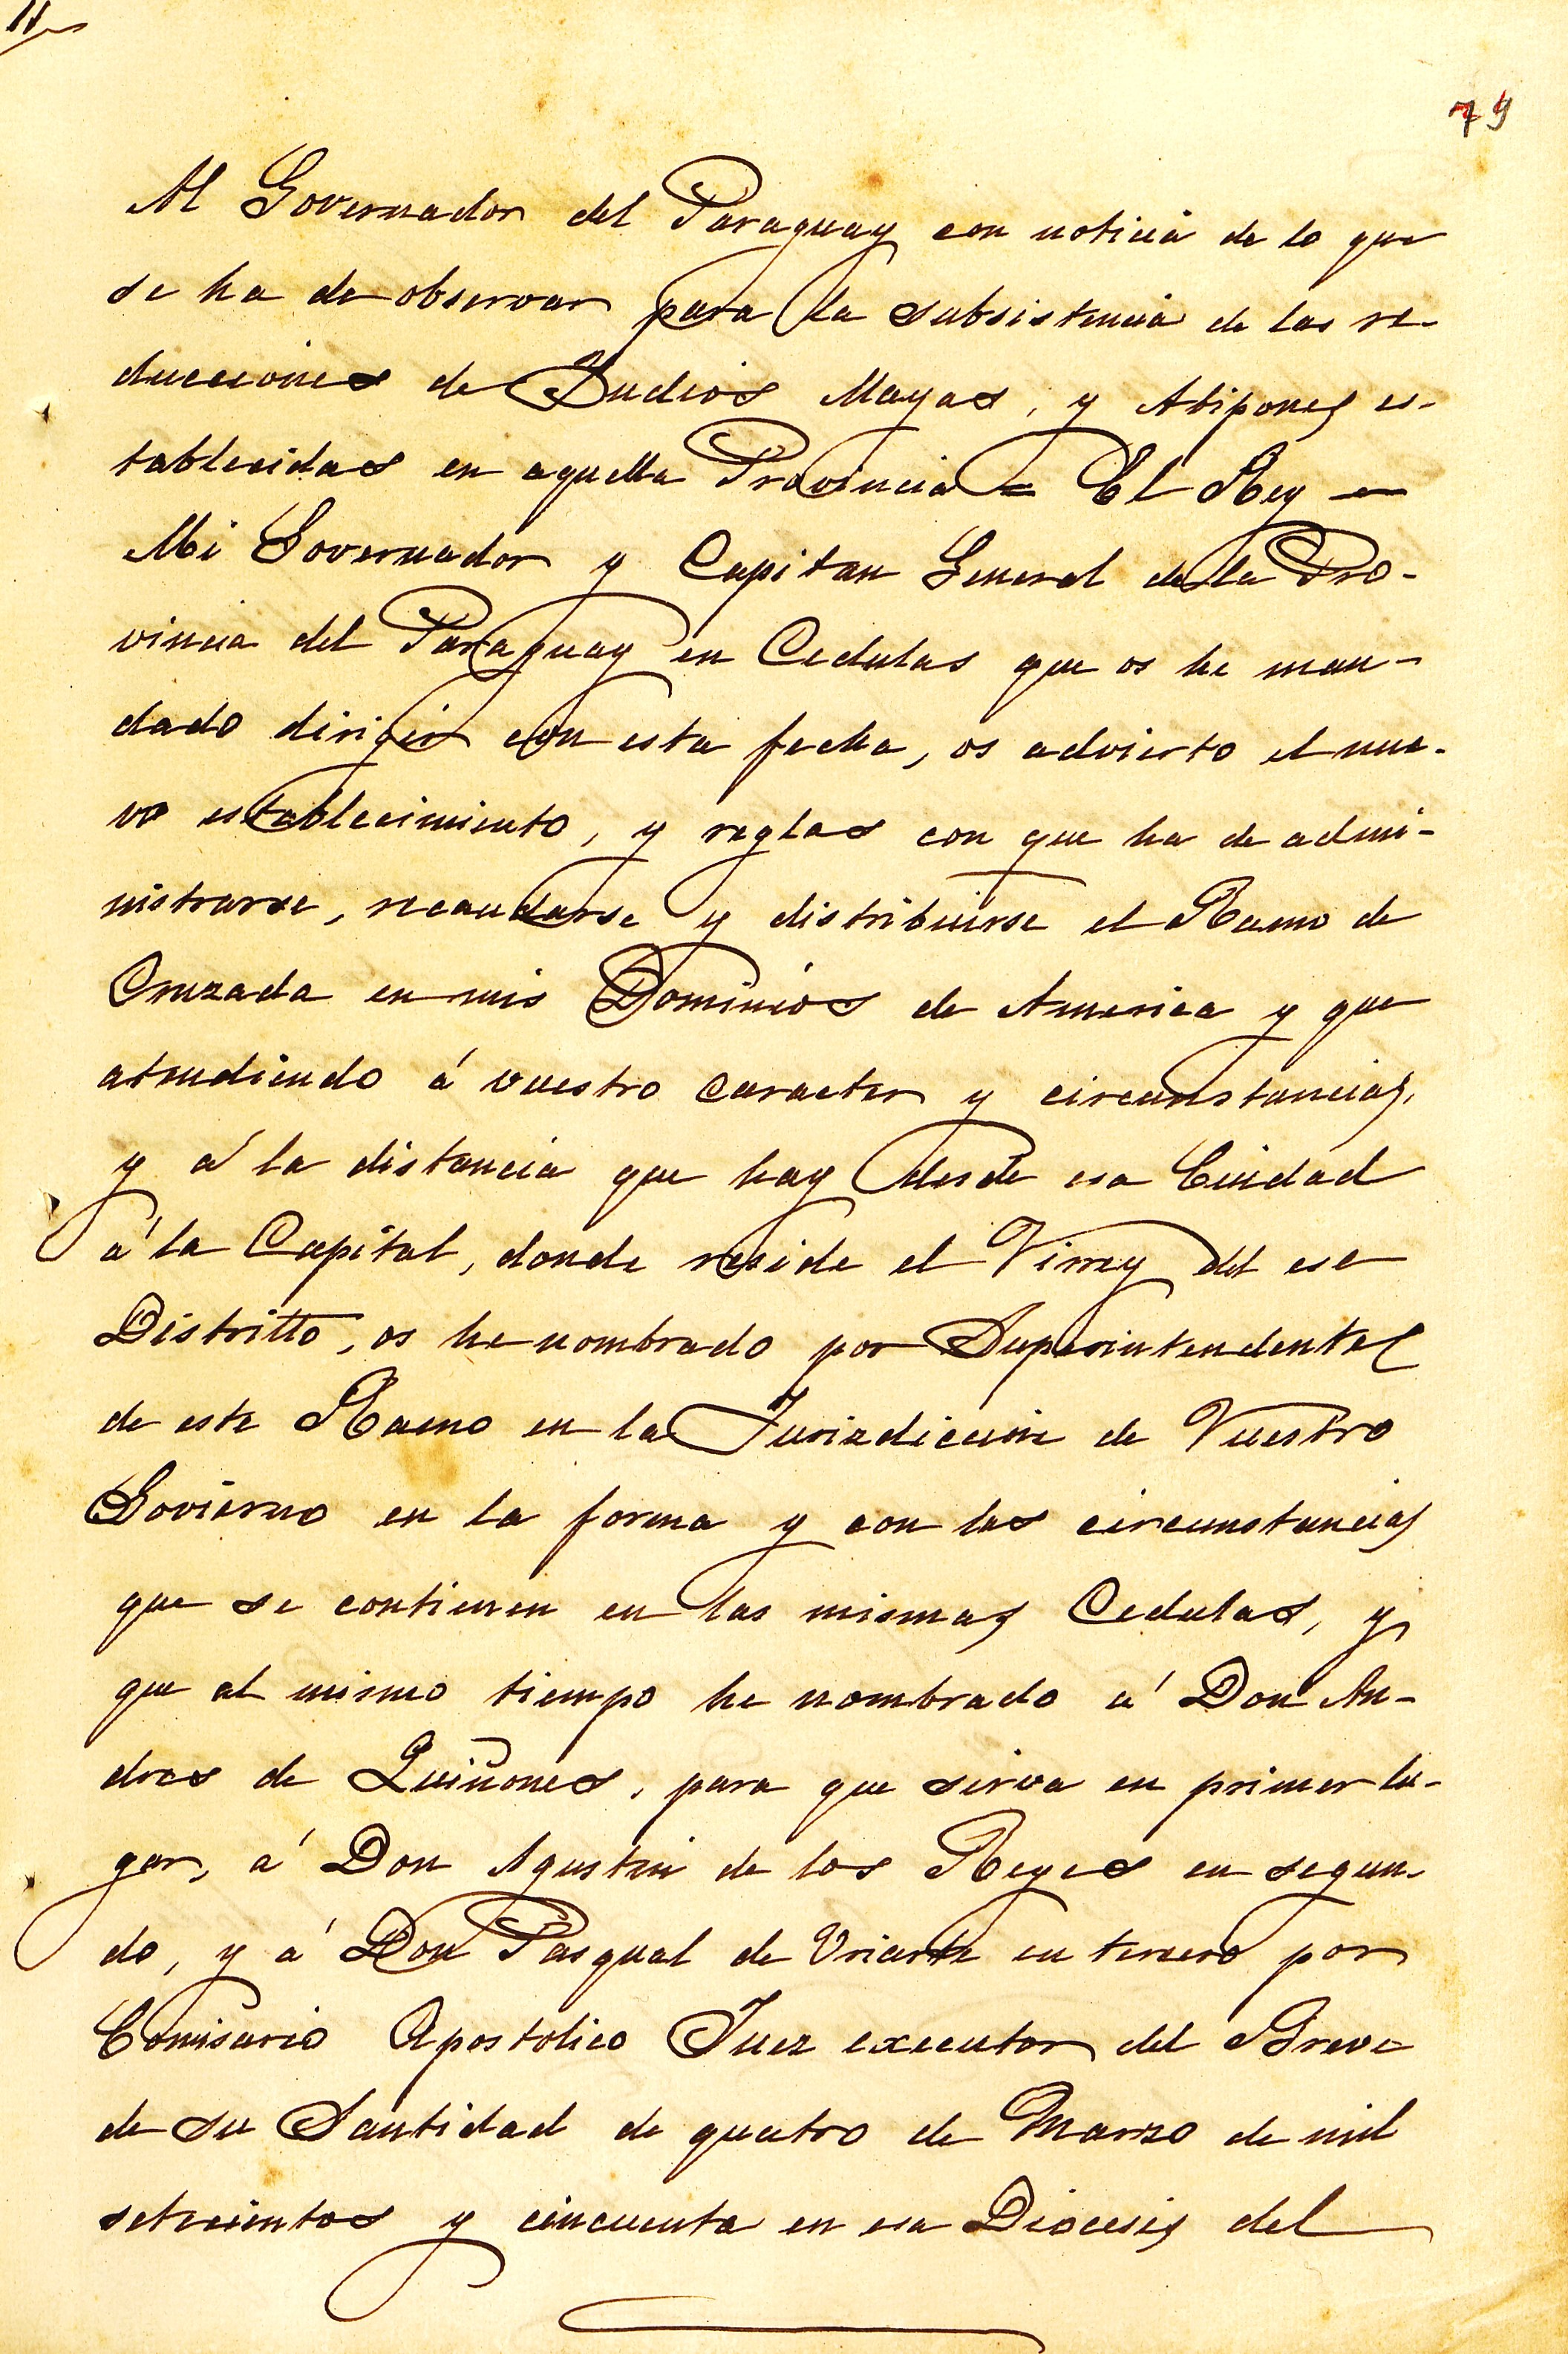 11
79
Al Governador del Paraguay con noticia de lo que
se ha de observar para la subsistencia de las re-
ducciones de Indios Mayas, y Abipones es-
tablecidas en aquella Provincia = El Rey =
Mi Governador y Capitan General de la Pro-
vincia del Paraguay en Cedulas que os he man-
dado dirigir con esta fecha, os advierto el nue-
vo establecimiento, y reglas con que ha de admi-
nistrarse, recaudarse y distribuirse el Ramo de
Cruzada en mis Dominios de America y que
atendiendo á vuestro caracter y circunstancias,
y á la distancia que hay desde esa Ciudad
á la Capital, donde reside el Virrey del ese
Distritto, os he nombrado por Superintendente
de este Ramo en la Jurizdiccion de Vuestro
Govierno en la forma y con las circunstancias
que se contienen en las mismas Cedulas, y
que al mismo tiempo he nombrado á Don An-
dres de Quiñones, para que sirva en primer lu-
gar, á Don Agustin de los Reyes en segun-
do, y á Don Pasqual de Uriarte en tercero por
Comisario Apostolico Juez executor del Breve
de su Santidad de quatro de Marzo de mil
setecientos y cincuenta en esa Diocesis del